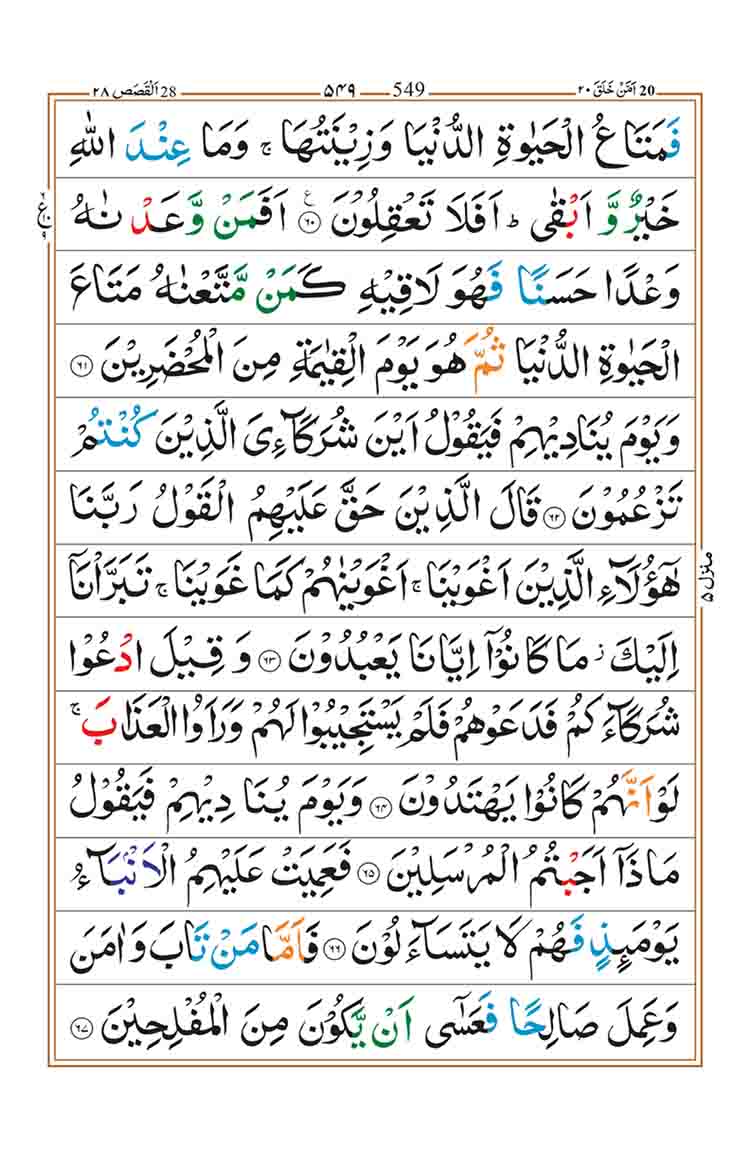 20 اَمَّنْ خَلَقَ ٢٠ 549 ۵۴۹ 28 اَلْقَصَص ٢٨
فَمَتَاعُ الْحَيٰوةِ الدُّنْيَا وَزِيْنَتُهَا ۚ وَمَا عِنْدَ اللّٰهِ
خَيْرٌ وَّ اَبْقٰى ؕ اَفَلَا تَعْقِلُوْنَ ﴿۶۰﴾ اَفَمَنْ وَّعَدْ نٰهُ
وَعْدًا حَسَنًا فَهُوَ لَاقِيْهِ كَمَنْ مَّتَّعْنٰهُ مَتَاعَ
الْحَيٰوةِ الدُّنْيَا ثُمَّ هُوَ يَوْمَ الْقِيٰمَةِ مِنَ الْمُحْضَرِيْنَ ﴿۶۱﴾
وَيَوْمَ يُنَادِيْهِمْ فَيَقُوْلُ اَيْنَ شُرَكَآءِىَ الَّذِيْنَ كُنْتُمْ
تَزْعُمُوْنَ ﴿۶۲﴾ قَالَ الَّذِيْنَ حَقَّ عَلَيْهِمُ الْقَوْلُ رَبَّنَا
هٰٓؤُلَآءِ الَّذِيْنَ اَغْوَيْنَا ۚ اَغْوَيْنٰهُمْ كَمَا غَوَيْنَا ۚ تَبَرَّاْنَاۤ
اِلَيْكَ ؗ مَا كَانُوْۤا اِيَّانَا يَعْبُدُوْنَ ﴿۶۳﴾ وَ قِيْلَ ادْعُوْا
شُرَكَآءَكُمْ فَدَعَوْهُمْ فَلَمْ يَسْتَجِيْبُوْا لَهُمْ وَرَاَوُا الْعَذَابَ ۚ
لَوْ اَنَّهُمْ كَانُوْا يَهْتَدُوْنَ ﴿۶۴﴾ وَيَوْمَ يُنَا دِيْهِمْ فَيَقُوْلُ
مَاذَاۤ اَجَبْتُمُ الْمُرْسَلِيْنَ ﴿۶۵﴾ فَعَمِيَتْ عَلَيْهِمُ الْاَنْۢبَآءُ
يَوْمَئِذٍ فَهُمْ لَا يَتَسَآءَلُوْنَ ﴿۶۶﴾ فَاَمَّا مَنْ تَابَ وَاٰمَنَ
وَعَمِلَ صَالِحًا فَعَسٰٓى اَنْ يَّكُوْنَ مِنَ الْمُفْلِحِيْنَ ﴿۶۷﴾
منزل ۵